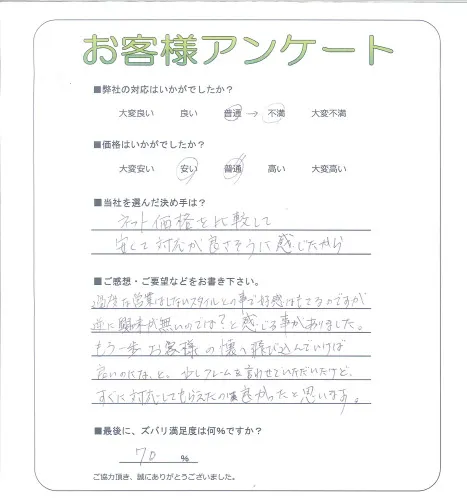 お客様アンケート
■弊社の対応はいかがでしたか？
大変良い 良い 普通 → 不満 大変不満
■価格はいかがでしたか？
大変安い 安い 普通 高い 大変高い
■当社を選んだ決め手は？
ネット価格を比較して
安くて対応が良さそうに感じたから
■ご感想・ご要望などをお書き下さい。
過度な営業はしないスタイルとの事で好感はもてるのですが
逆に興味が無いのでは？と感じる事がありました。
もう一歩お客様の懐へ飛び込んでいけば
良いのにな、と。少しクレームを言わせていただいたけど、
すぐに対応してもらえたのは良かったと思います。
■最後に、ズバリ満足度は何％ですか？
70 ％
ご協力頂き、誠にありがとうございました。